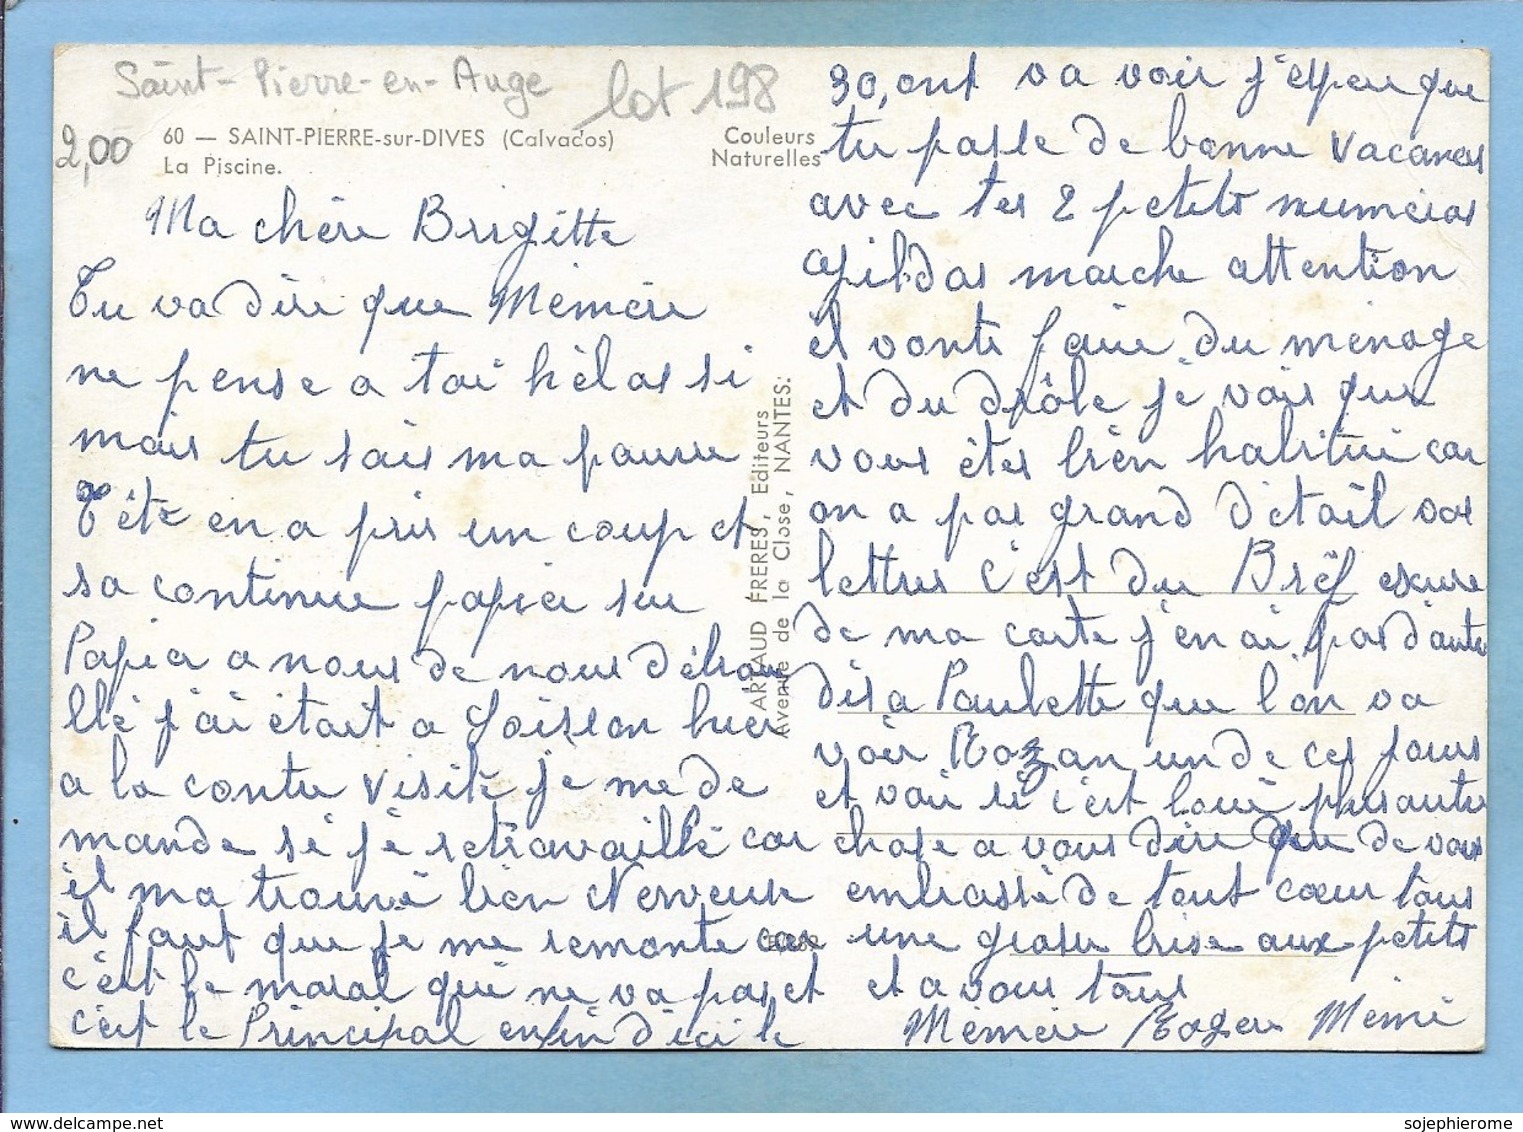 Saint-Pierre-en-Auge
lot 198
2,00
60 — SAINT-PIERRE-sur-DIVES (Calvados)
La Piscine.
Couleurs
Naturelles
Ma chére Brigitte
Tu va dire que Mémére
ne pense a toi hélas si
mais tu sais ma pauvre
Tête en a pris un coup et
sa continue papier sur
Papier a nous de nous débroui
llé j'ai était a Soisson hier
a la contre visite je me de
mande si je retravaillé car
il ma trouvé bien Nerveuse
il faut que je me remonte car
c'est le moral qui ne va pas et
c'est le Principal enfin d'ici le
ARTAUD FRERES, Editeurs
Avenue de la Close, NANTES.
30, ont va voir j'espere que
tu passe de bonne vacances
avec tes 2 petits numéros
Gildas marche attention
il vonts faire du ménage
et du drôle je vois que
vous étes bien habitué car
on a pas grand détail vos
lettres c'est du Bréf excuse
de ma carte j'en ai pas d'autre
dis a Paulette que l'on va
voir Rozan un de ces jours
et voir si c'est loué plus autre
chose a vous dire que de vous
embrassé de tout cœur tous
une grosse bise aux petits
et a vous tous
Mémére Roger Mémé
sojephierome